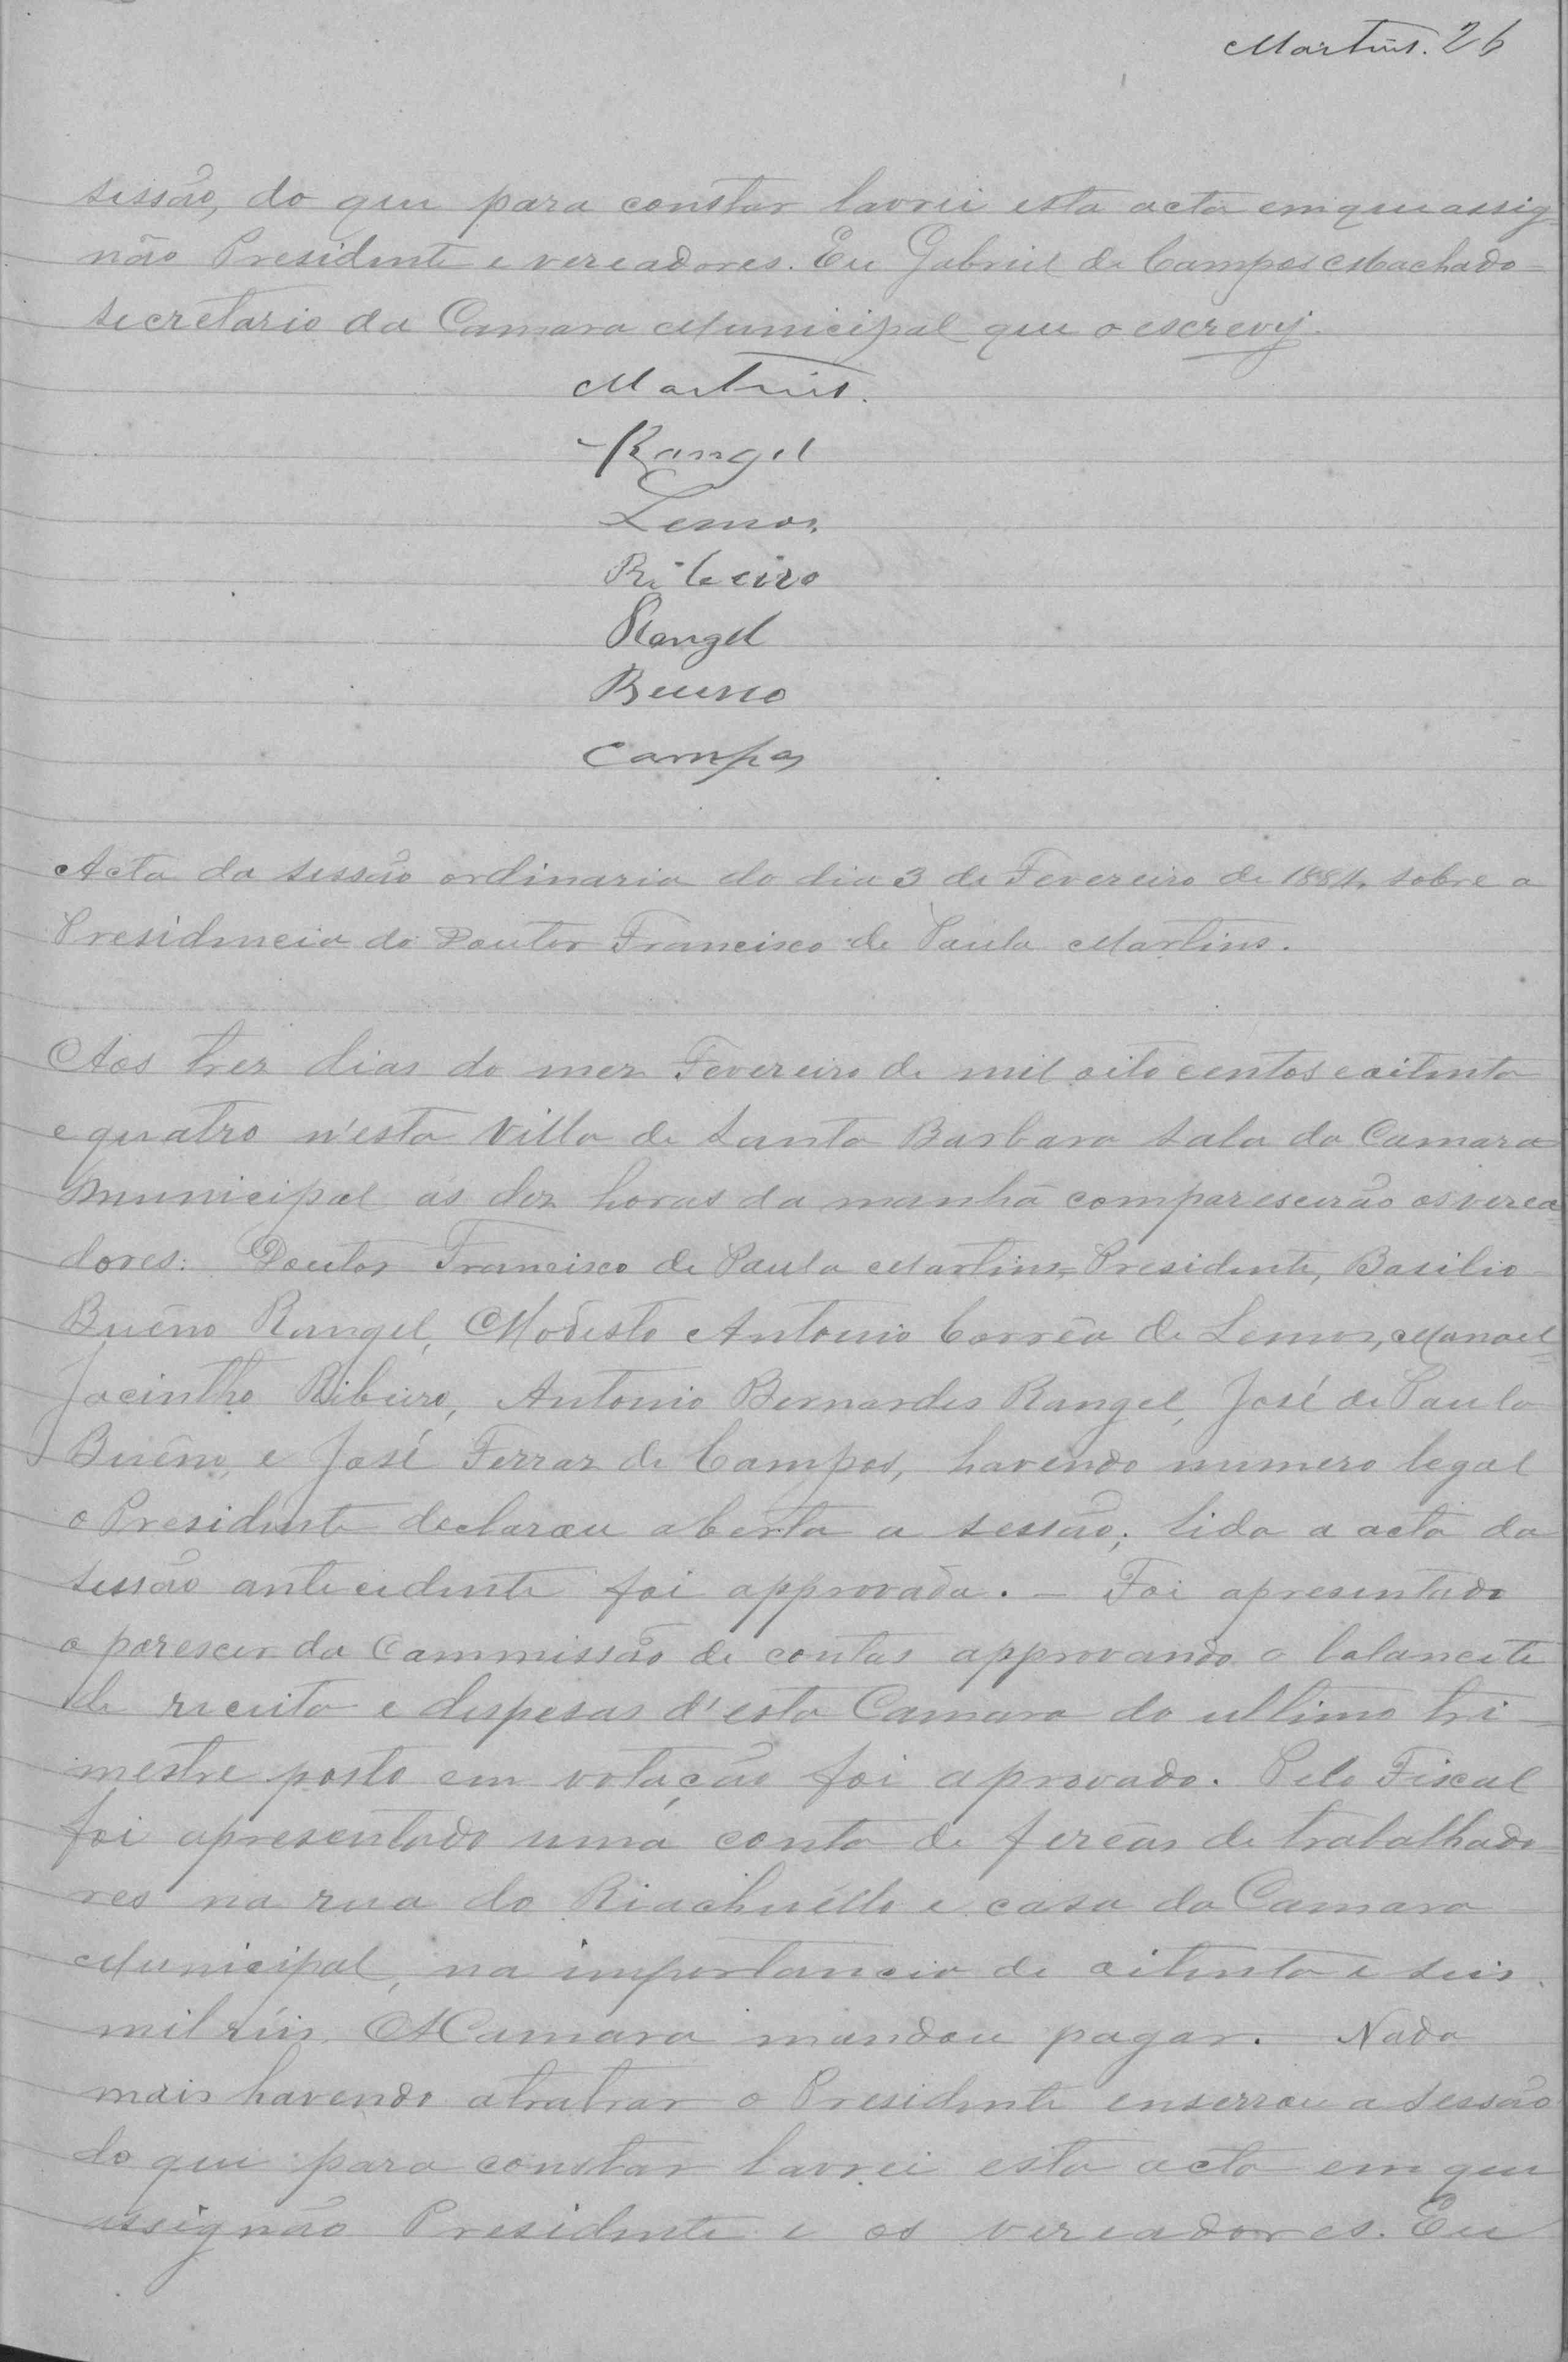 Martins. 26
sessão, do que para constar lavrei esta acta em que assig-
não Presidente e vereadores. Eu Gabriel de Campos Machado
secretario da Camara Municipal que o escrevy.
Martins.
Rangel
Lemos
Ribeiro
Rangel
Bueno
Campos
Acta da sessão ordinaria do dia 3 de Fevereiro de 1884, sobre a
Presidencia do Doutor Francisco de Paula Martins.
Aos trez dias do mez Fevereiro de mil oito centos e oitenta
e quatro n'esta Villa de Santa Barbara sala da Camara
Municipal as dez horas da manhã comparescerão os verea=
dores: Doutor Francisco de Paula Martins, Presidente, Basilio
Buêno Rangel, Modesto Antonio Corrêa de Lemos, Manoel
Jacintho Ribeiro, Antonio Bernardes Rangel, José de Paula
Buêno, e José Ferraz de Campos, havendo numero legal
o Presidente declarou aberta a sessão; lida a acta da
sessão antecedente foi approvada. — Foi apresentado
o parescer da Commissão de contas approvando o balancete
de receita e despesas d'esta Camara do ultimo tri-
mestre posto em votação foi aprovado. Pelo Fiscal
foi apresentado uma conta de fereas de trabalhado
res na rua do Riachuéllo e casa da Camara
Municipal, na importancia de oitenta e seis
mil réis. A Camara mandou pagar. Nada
mais havendo a tratar o Presidente enserrou a sessão
do que para constar lavrei esta acta em que
assignão Presidente e os vereadores. Eu